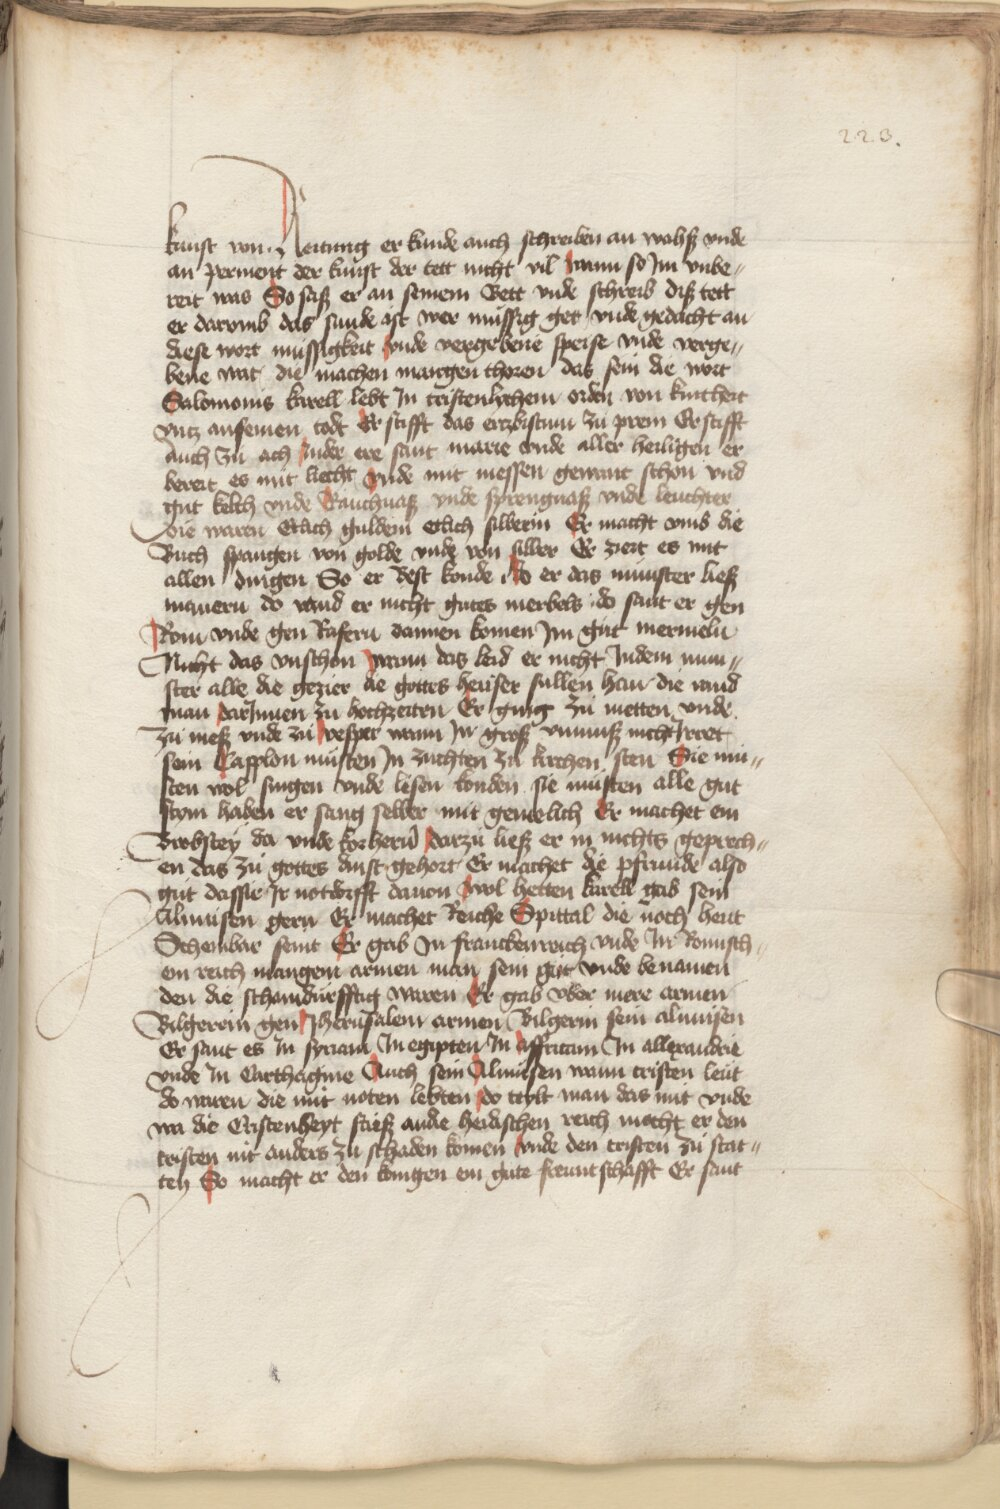 223.
kunst von Reitung er kunde auch schreiben an wahß vnde
an perment der kunst der tett nicht vil wann so Im vnbe„
reit was So saß er an seinem Bett vnde schreib diß tett
er daromb das sunde ist wer mussig get vnde gedacht an
diese wort mussigkeit vnde vergebene speise vnde verge„
bene wat die machen mangen thoren das sein die wort
Salomonis karell lebt In cristenlychem orden von kintheit
vntz an seinen todt Er stifft das erzbistum zu prem Er stifft
auch zu ach In der ere sant marie vnde aller heiligen er
bereit es mit liecht vnde mit messen gewant schon vnd
gut kelch vnde Rauchuaß vnde sprenguaß vnde leuchter
die waren etlich guldein etlich silberin Er macht vmb die
Buch spangen von golde vnde von silber Er ziert es mit
allen dingen So er best konde Do er das munster ließ
mauern do vand er nicht gutes merbels do sant er gen
Rom vnde gen Rafern dannen komen Im gut mermeln
Nicht das vnschon wann das leid er nicht In dem mun„
ster alle die gezier die gottes heuser sullen han die vand
man dar Innen zu hochzeiten Er ging zu metten vnde
zu meß vnde zu vesper wann In groß vnmuß nicht Irret
sein Capplon musten In zuchten zu kirchen sten Sie mu„
sten wol singen vnde lesen konden sie musten alle gut
stym haben er sang selber mit gemelich Er machet ein
Brobstey da vnde korhern darzu ließ er in nichts geprech„
en das zu gottes dinst gehort Er machet die pfrunde also
gut das sie Ir notdorfft dauon wol hetten karell gab sein
Almusen gern Er machet Reiche Spittal die noch heut
Scheinbar seint Er gab In franckenreich vnde In Romisch„
en reich mangem armen man sein gut vnde benamen
den die schamdurfftig waren Er gab vber mere armen
Bilgerein gen Jherusalem armen Bilgerin sein almusen
Er sant es In syriam In egipten In affricam In allexandrie
vnde In Carthagine Auch sein Almusen wann cristen leut
do waren die mit noten lebten do teylt man das mit vnde
wa die Cristenheyt stieß an die heidischen reich mocht er den
cristen nit anders zu schaden komen vnde den cristen zu stat„
ten So macht er den konigen ein gute freuntschafft Er sant